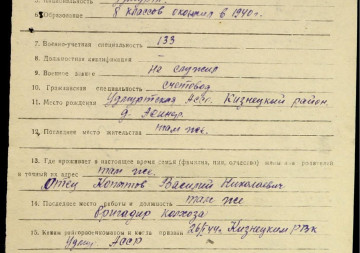 6. Образование 8 классов окончил в 1940 г.
7. Военно-учетная специальность 133
8. Должностная квалификация —
9. Военное звание не служил
10. Гражданская специальность счетовод
11. Место рождения Удмуртская Асср. Кизнецкий район
12. Последнее место жительства там же.
13. Где проживает в настоящее время семья (фамилия, имя, отчество) жены или родителей
и точный их адрес там же.
Отец Василий Николаевич
14. Последнее место работы и должность там же
бригадир колхоза
15. Каким райгорвоенкоматом и когда призван Кизнецким РВК
Удм. АССР